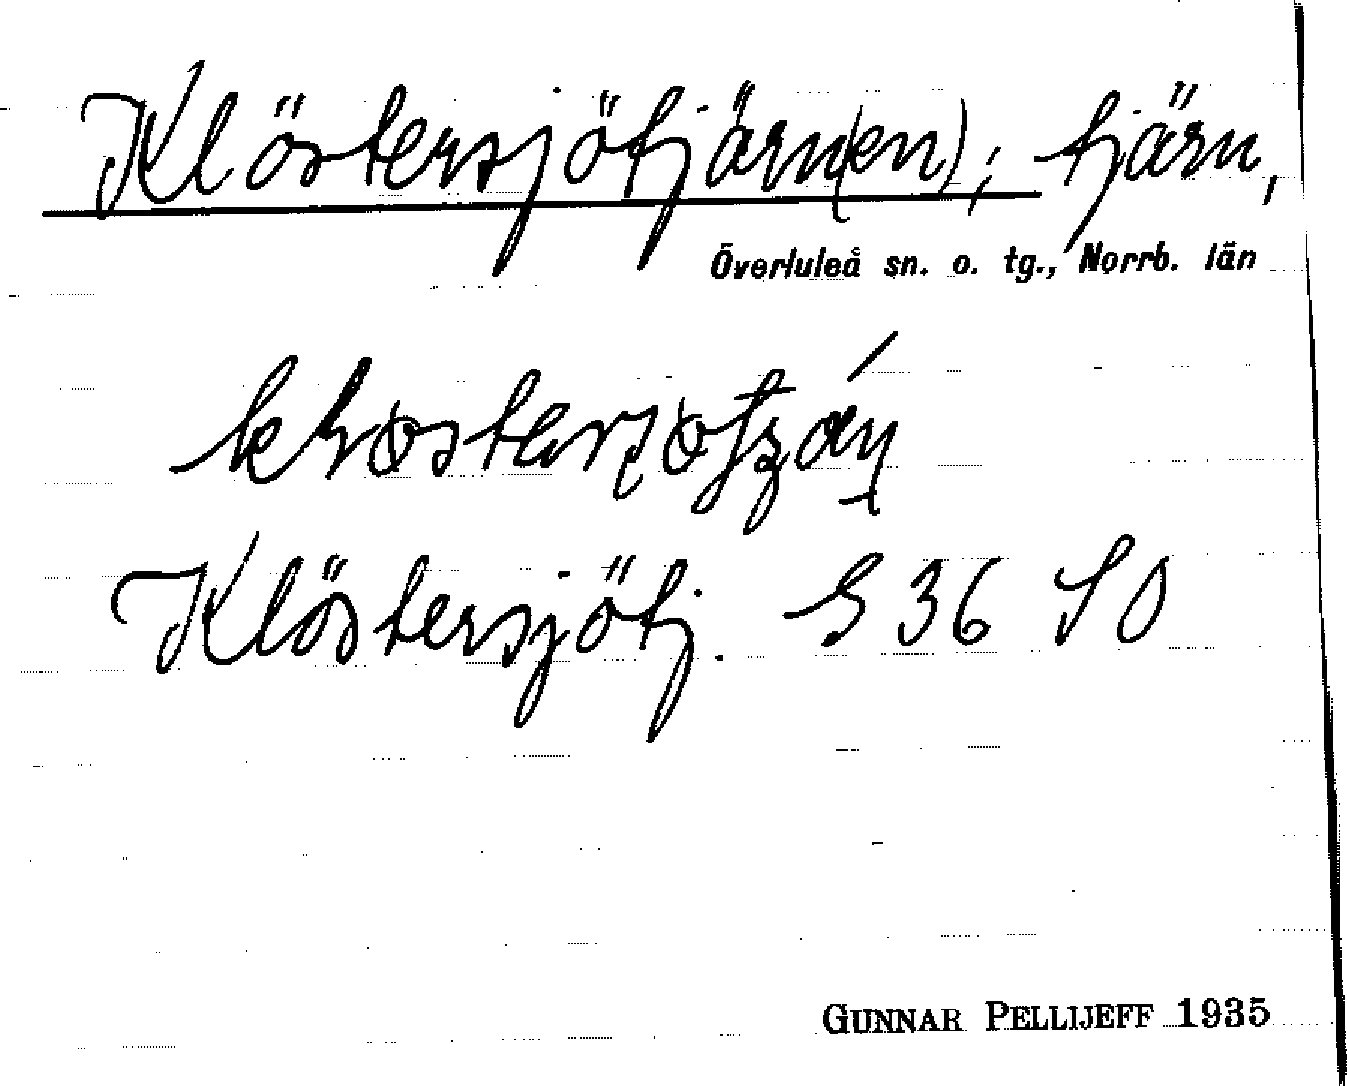 Klöstersjötjärn(en); tjärn,
Överluleå sn. o. tg., Norrb. län
Klöstersjötj. G 36 SO
GUNNAR PELLIJEFF 1935